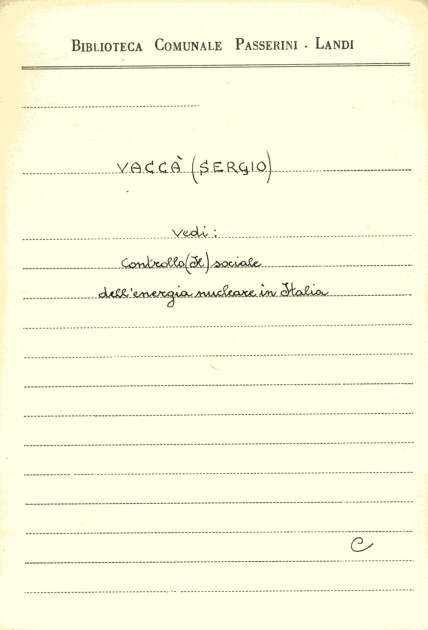 BIBLIOTECA COMUNALE PASSERINI - LANDI
VACCÀ (SERGIO)
vedi:
Controllo (Il) sociale
dell'energia nucleare in Italia
C